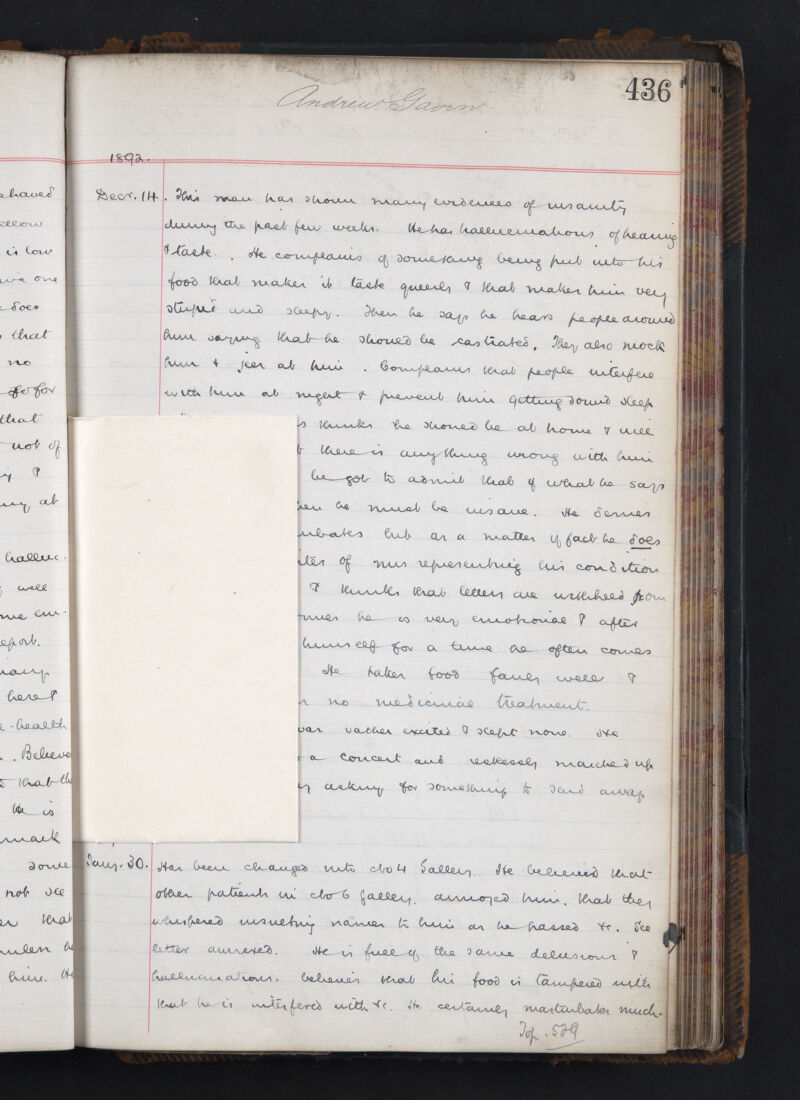 haved
ellow
is low
ive one
does
that
no
for
that
not of
y &
ny at
halluc.
well
me em-
eport.
many
here &
e-health
. Believe
that the
He is
mark
some
not see
that
he
him. He
Andrew Gavin
436
1892.
Decr. 14. This man has shown many evidences of insanity
during the past few weeks. He has hallucinations of hearing
& taste. He complains of something being put into his
food that makes it taste queerly & that makes him very
stupid and sleepy. Then he says he hears people around
him saying that he should be castrated. They also mock
him & jeer at him. Complains that people interfere
with him at night & prevent him getting sound sleep
s thinks he should be at home & will
t there is anything wrong with him
be got to admit that if what he says
hen he must be insane. He denies
urbates but as a matter of fact he does
ites of misrepresenting his condition
& thinks that letters are withheld from
imes he is very emotional & after
himself for a time he often comes
He takes food fairly well &
no medicinal treatment.
was rather excited & slept none. He
a concert and restlessly marched up
asking for something to said away
Jany. 30. Has been changed into cbo 4 Gallery. He believed that
other patients in cbo 6 gallery annoyed him, that they
whispered insulting names to him as he passed &c. See
letter annexed. He is full of the same delusions &
hallucinations. believes that his food is tampered with
that he is interfered with &c. He certainly masturbates much.
Top. 529